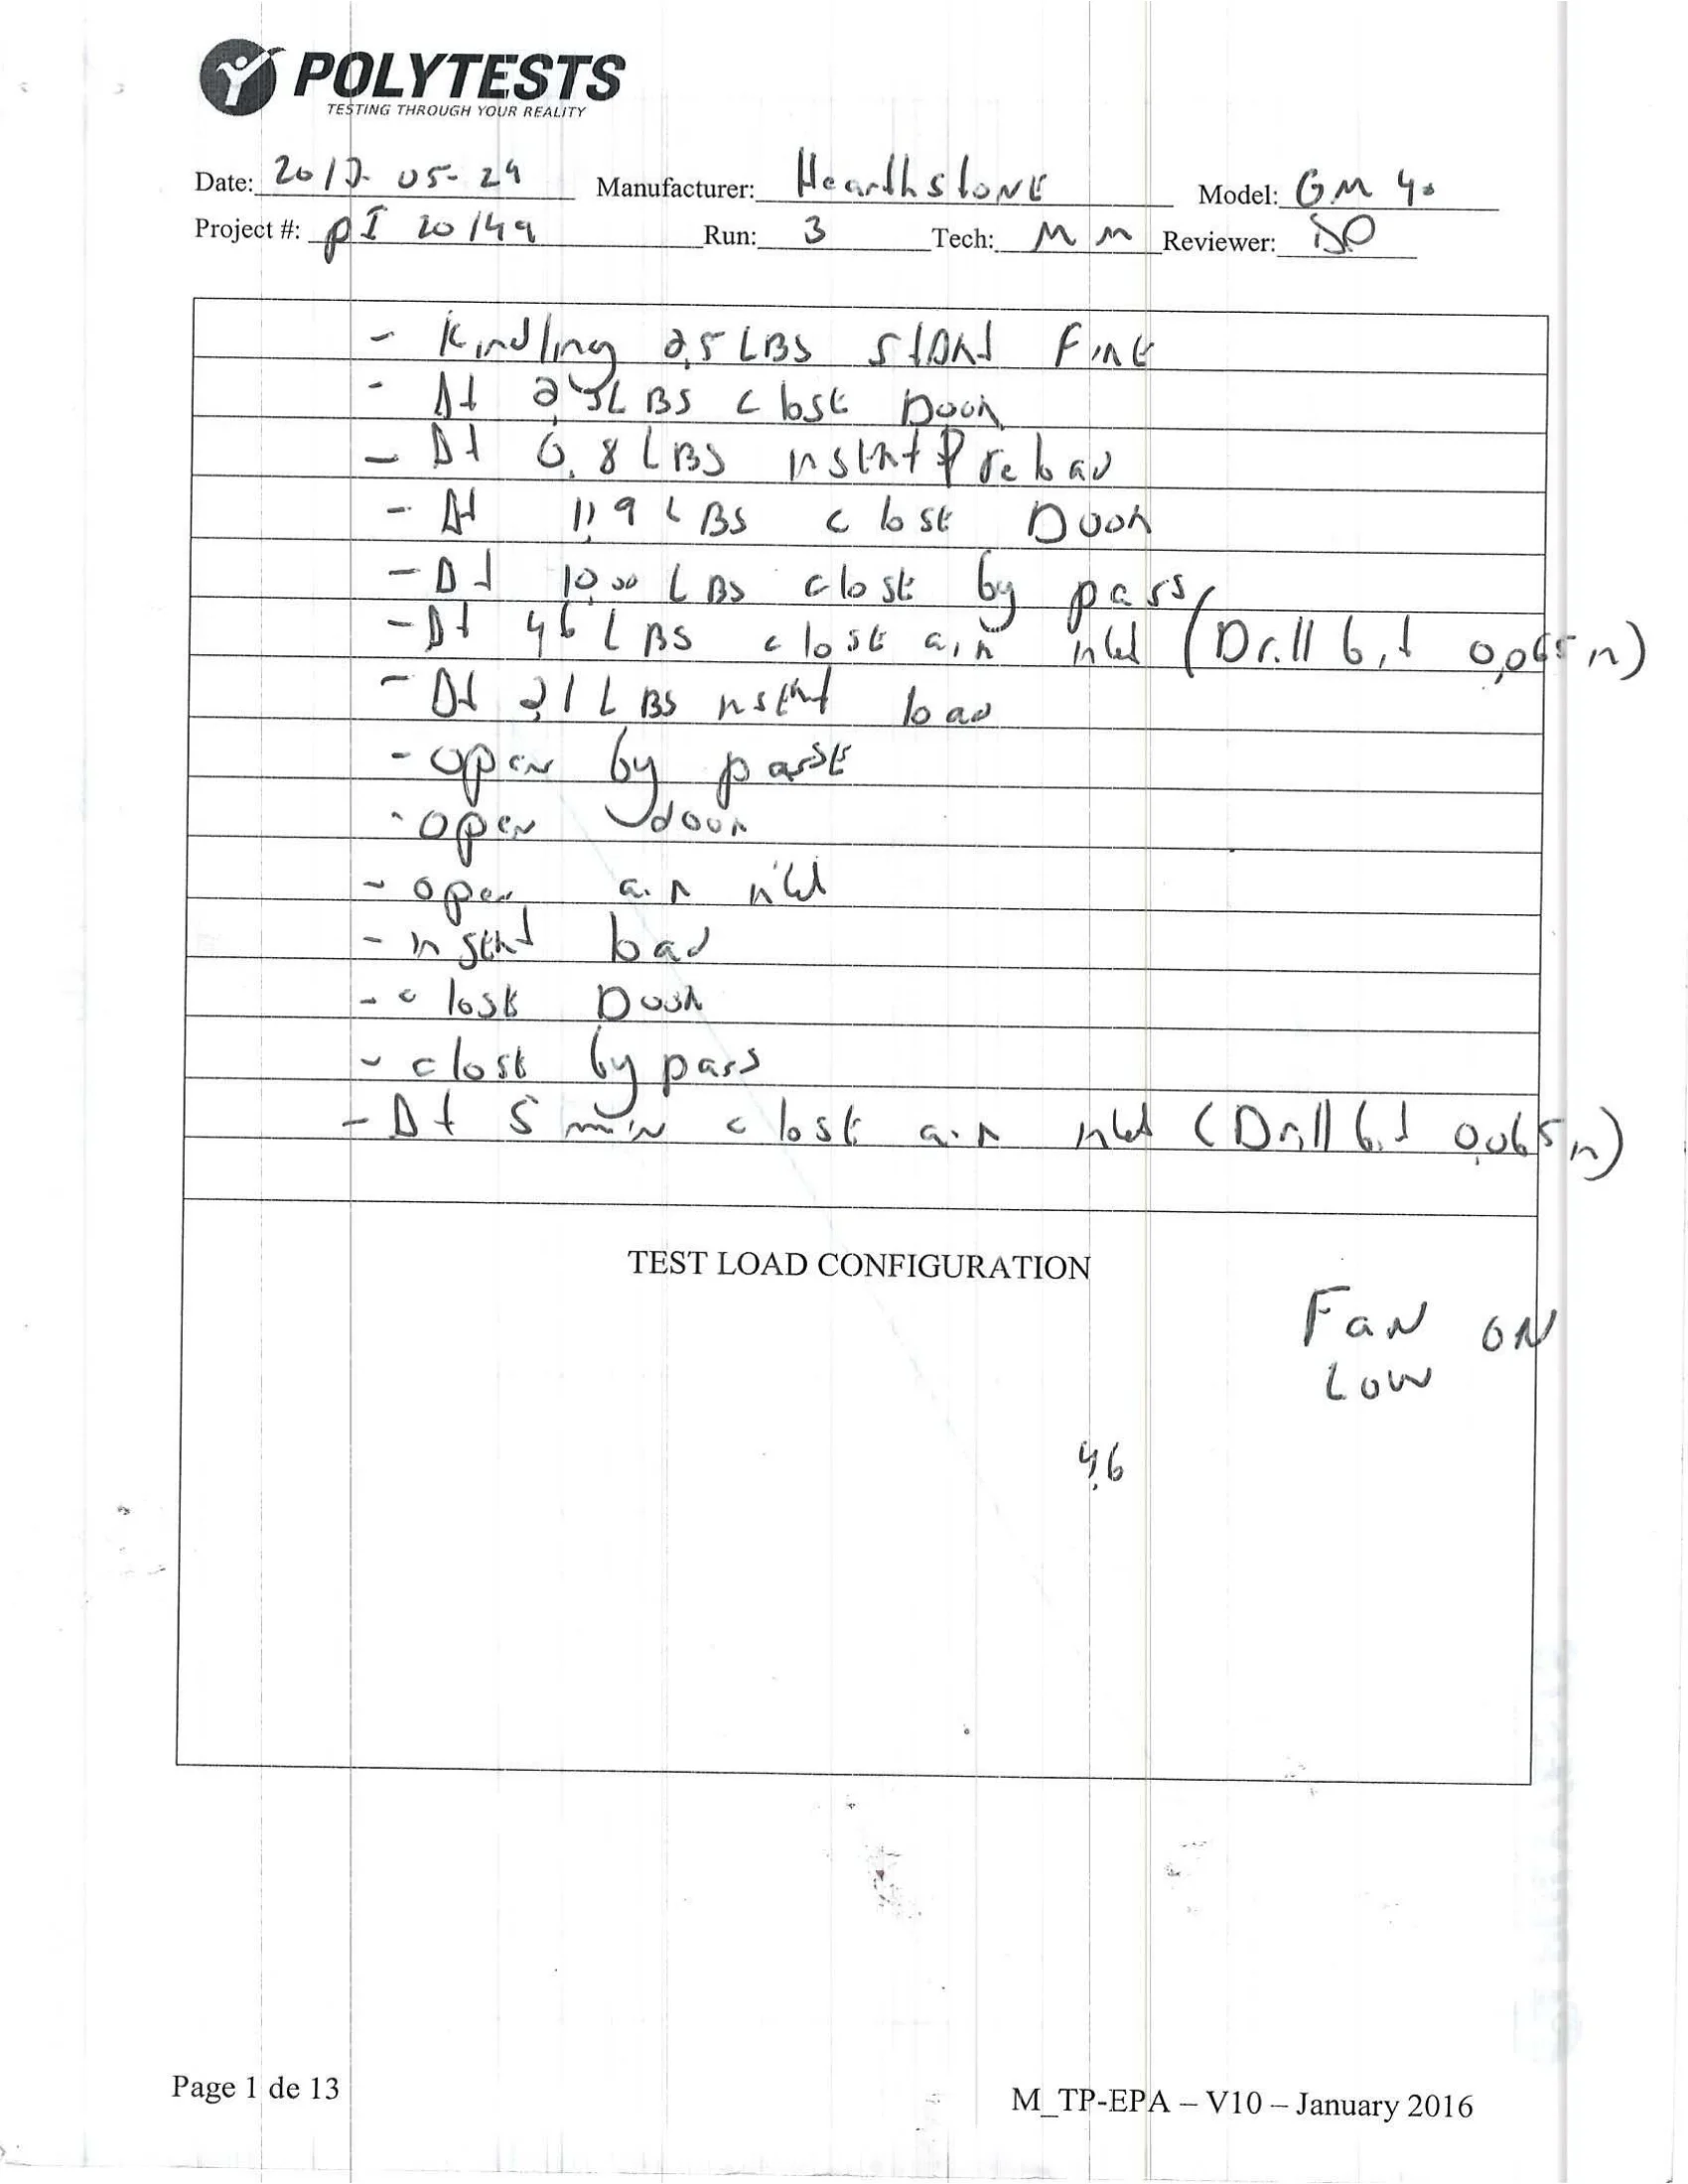 POLYTESTS
TESTING THROUGH YOUR REALITY
Date: 2017-05-29 Manufacturer: HearthstoNE Model: GM 40
Project #: pI 20149 Run: 3 Tech: MM Reviewer: DP
- Kindling 2,5 LBS stARt FirE
- At LBS closE Door
- At 0,8 LBS insErt Preload
- At 11,9 LBS closE Door
- At 10,00 LBS closE by pass
- At 4,6 LBS closE air inlet (Drill bit 0,065 in)
- At 2,1 LBS insErt load
- open by passE
- open door
- open air inlet
- insErt load
- closE Door
- closE by pass
- At 5 min closE air inlet (Drill bit 0,065 in)
TEST LOAD CONFIGURATION
FaN ON
Low
4,6
Page 1 de 13
M_TP-EPA – V10 – January 2016